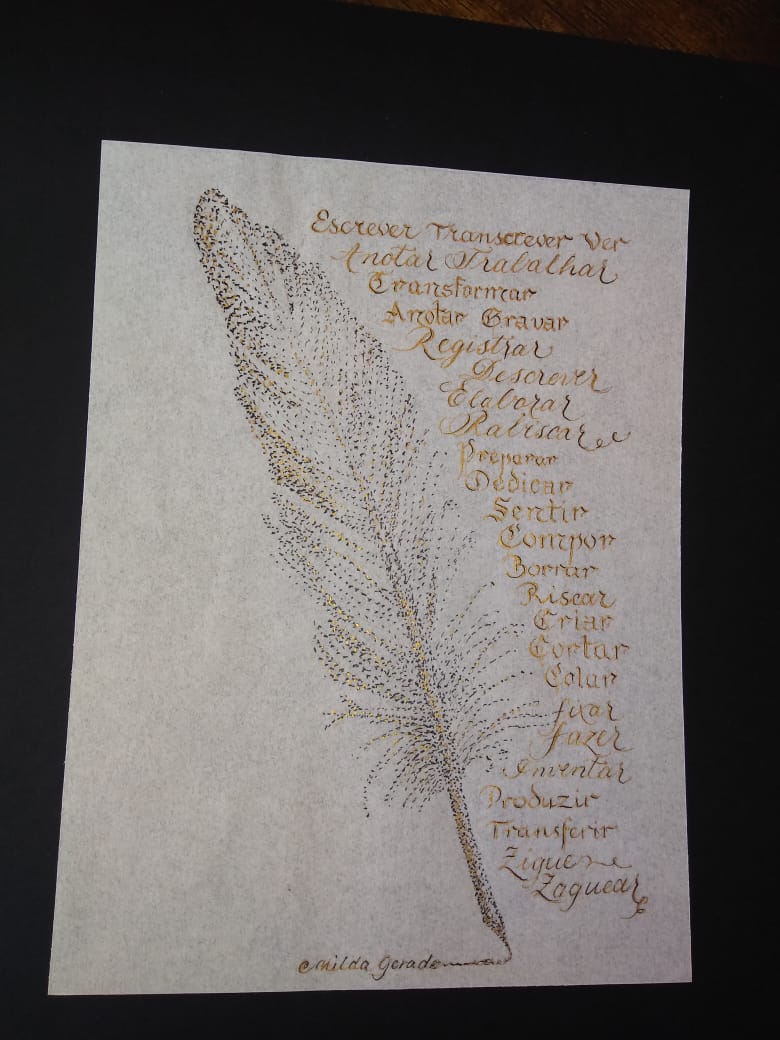 Escrever Transcrever Ver
Anotar Trabalhar
Transformar
Anotar Gravar
Registrar
Descrever
Elaborar
Rabiscar
Preparar
Dedicar
Sentir
Compor
Borrar
Riscar
Criar
Cortar
Colar
fixar
fazer
Inventar
Produzir
Transferir
Zigue
Zaguear
Milda Gerade